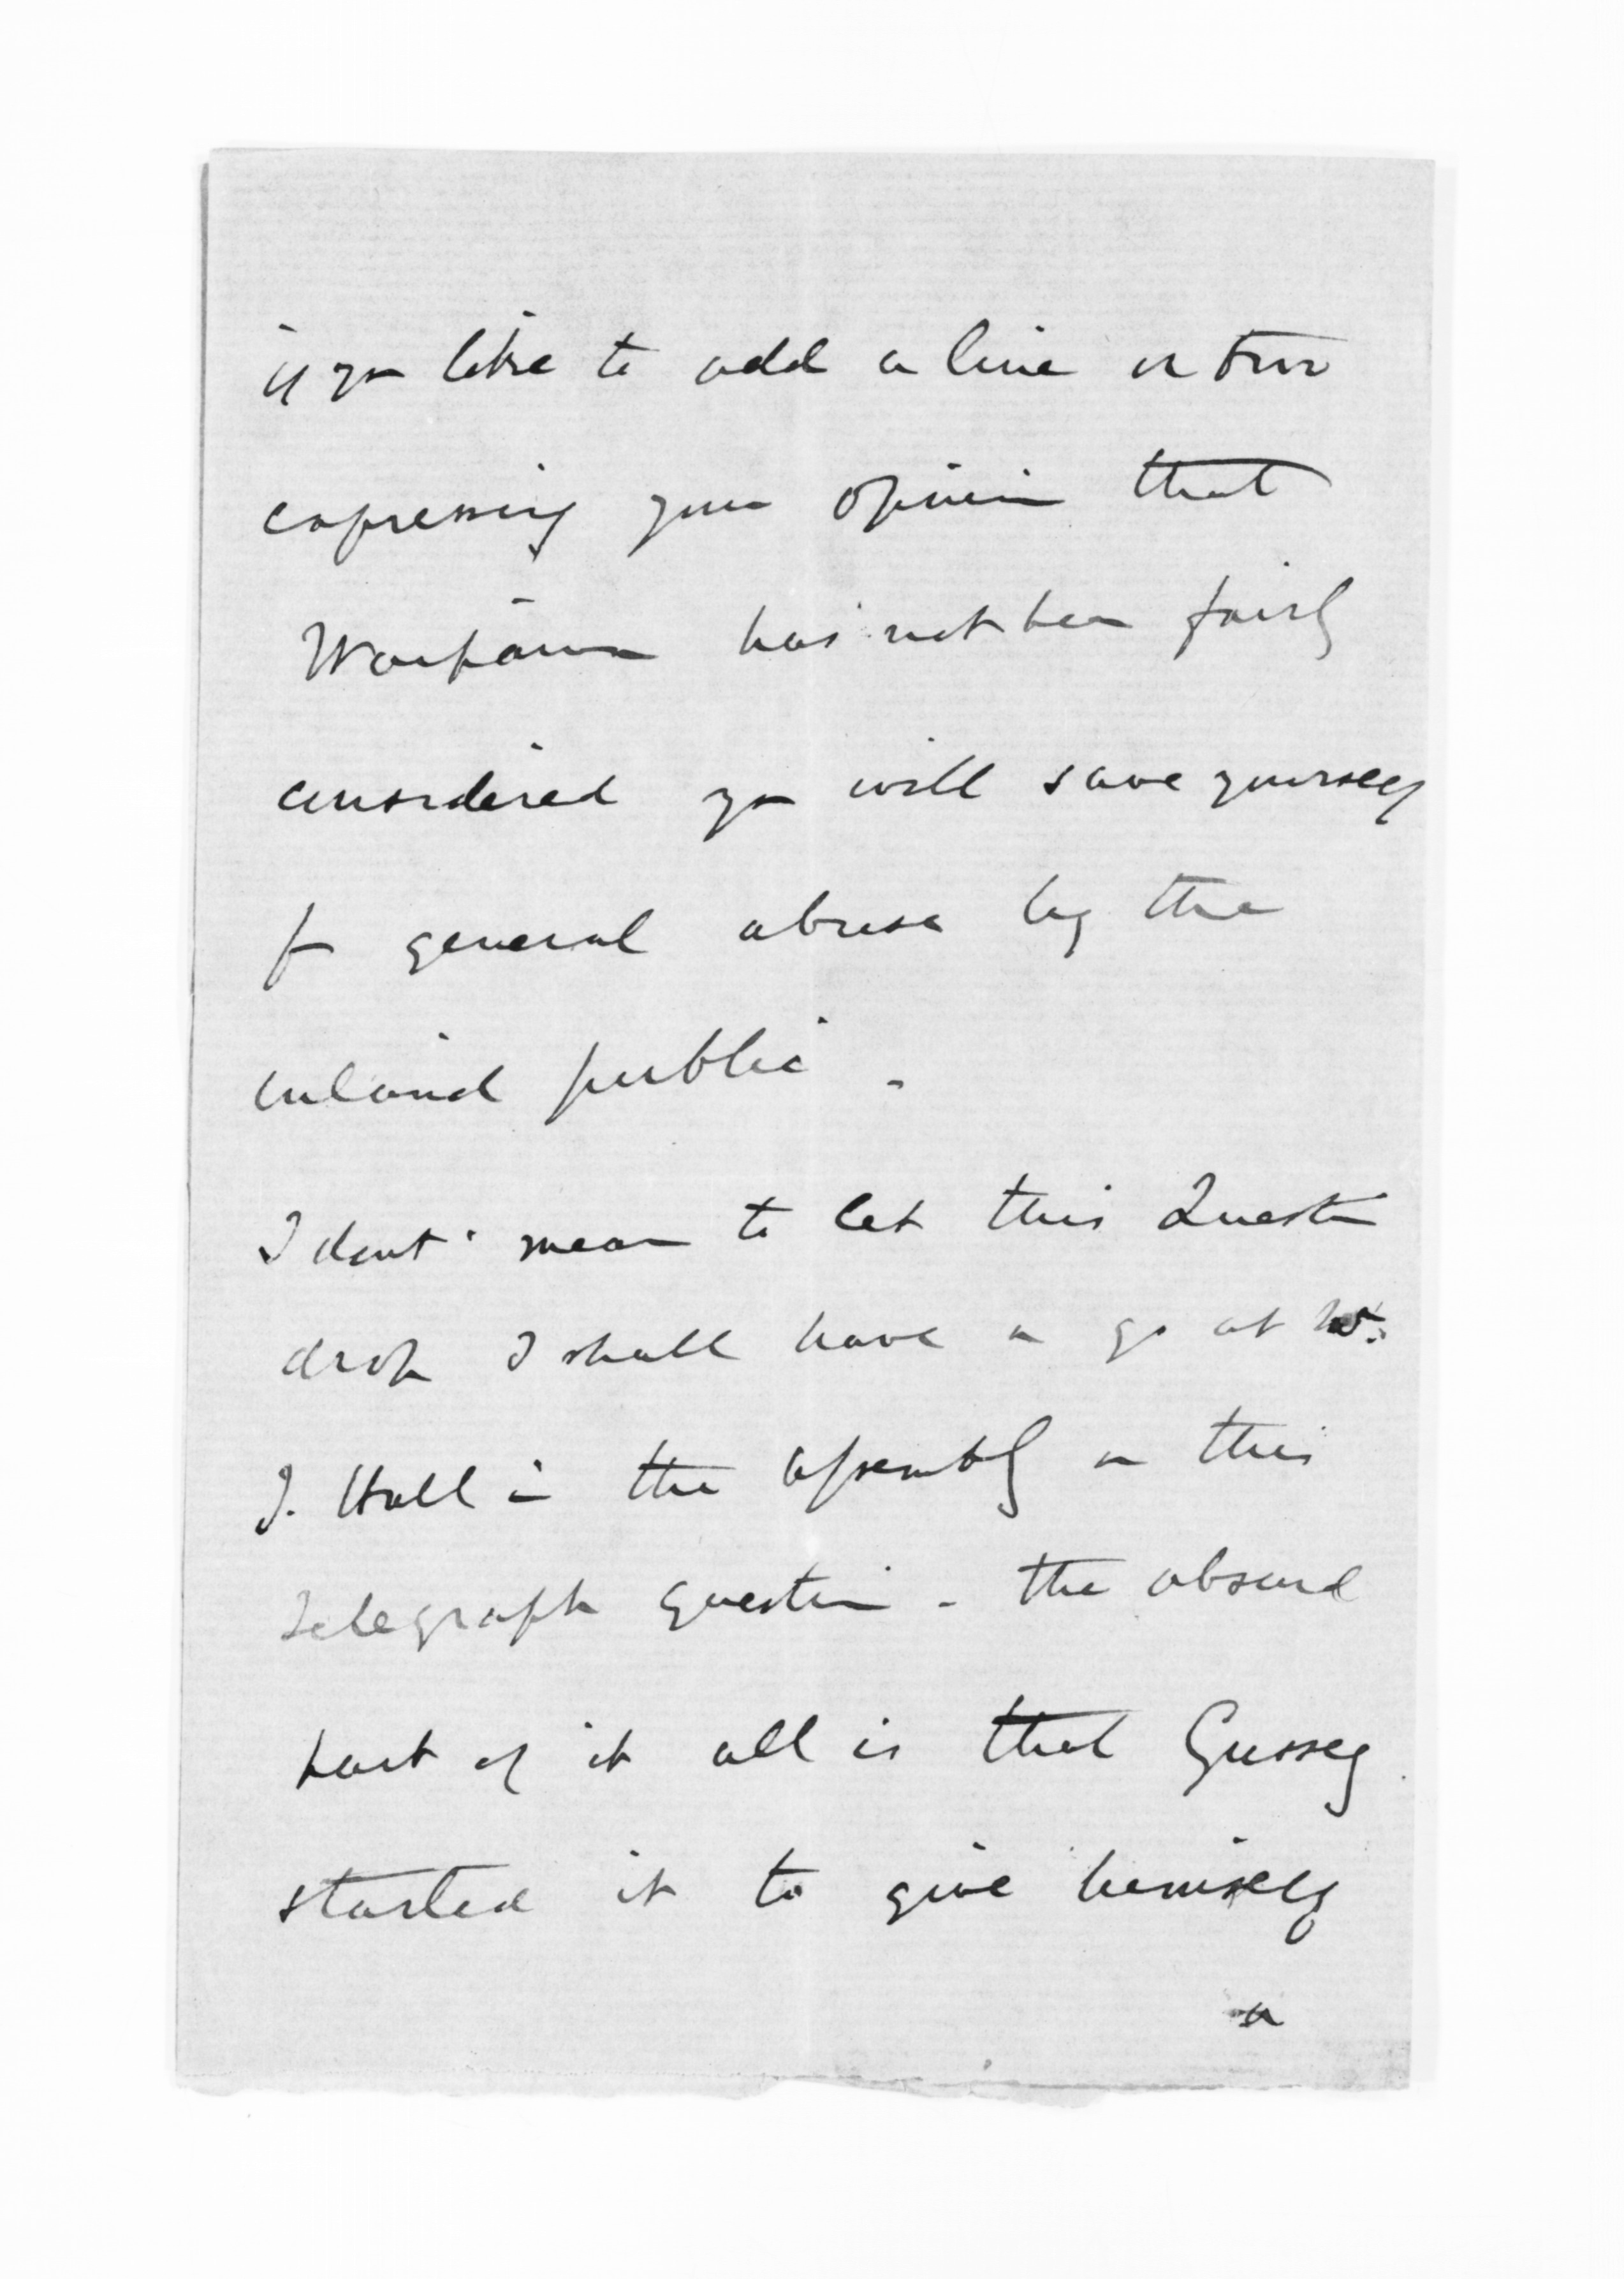 if you like to add a line or two
expressing your opinion that
Waipawa has not been fairly
considered you will save yourself
fr general abuse by the
inland public.
I dont mean to let this Question
drop I shall have a go at
J. Hall in the Assembly on this
Telegraph question - the absurd
part of it all is that Gussey
started it to give himself
a